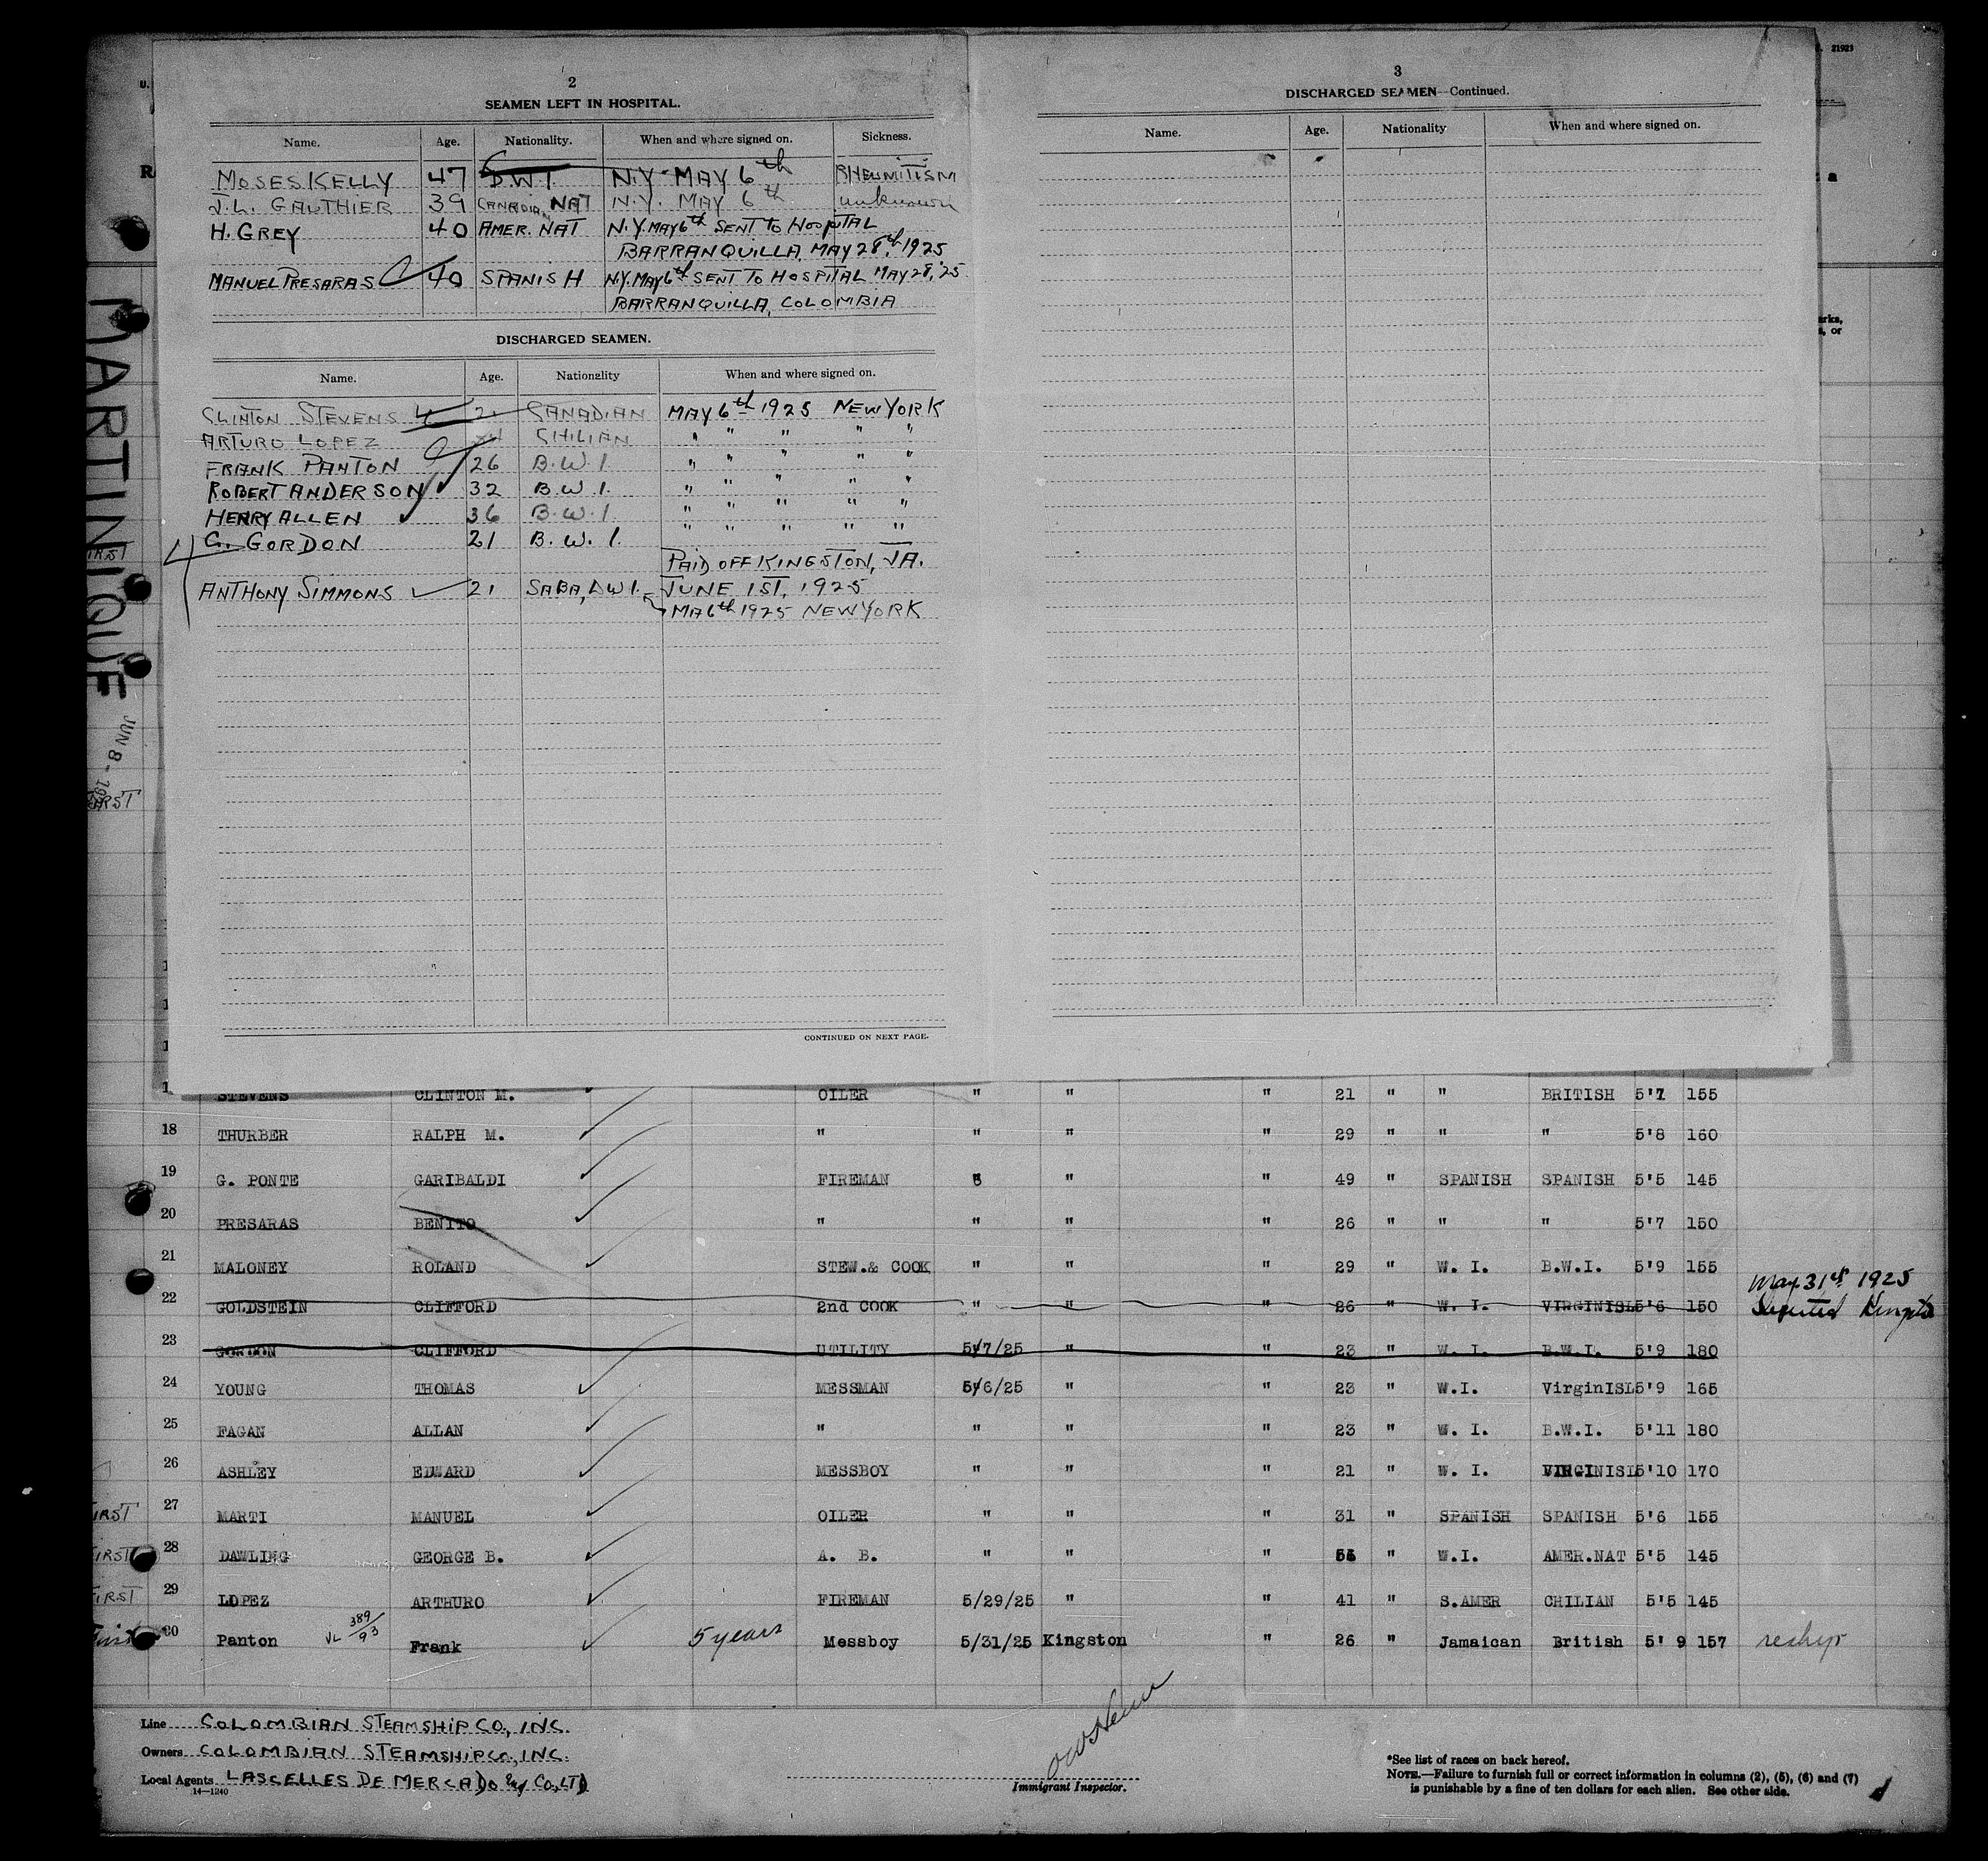 2
SEAMEN LEFT IN HOSPITAL.
Name. Age. Nationality. When and where signed on. Sickness.
MOSES KELLY 47 D.W.I. N.Y. MAY 6th RHEUMITISM
J.L. GAUTHIER 39 CANADIAN NAT N.Y. MAY 6th unknown
H. GREY 40 AMER. NAT N.Y. MAY 6th SENT TO HOSPITAL
BARRANQUILLA, MAY 28th, 1925
MANUEL PRESARAS 40 SPANISH N.Y. MAY 6th SENT TO HOSPITAL MAY 28, '25
BARRANQUILLA, COLOMBIA
DISCHARGED SEAMEN.
Name. Age. Nationality When and where signed on.
CLINTON STEVENS 21 CANADIAN MAY 6th 1925 NEW YORK
ARTURO LOPEZ CHILIAN " " " " "
FRANK PANTON 26 B.W.I. " " " " "
ROBERT ANDERSON 32 B.W.I. " " " " "
HENRY ALLEN 36 B.W.I. " " " " "
G. GORDON 21 B.W.I. " " " " "
PAID OFF KINGSTON, JA.
ANTHONY SIMMONS 21 SABA, D.W.I. JUNE 1ST, 1925
MA 6th 1925 NEW YORK
CONTINUED ON NEXT PAGE.
3
DISCHARGED SEAMEN—Continued.
Name. Age. Nationality When and where signed on.
21923
MARTINIQUE
JUN 8 - 192
STEVENS CLINTON M. OILER " " " 21 " " BRITISH 5'7 155
18 THURBER RALPH M. " " " " 29 " " " 5'8 160
19 G. PONTE GARIBALDI FIREMAN " " 49 " SPANISH SPANISH 5'5 145
20 PRESARAS BENITO " " " " 26 " " " 5'7 150
21 MALONEY ROLAND STEW.& COOK " " " 29 " W. I. B.W.I. 5'9 155
May 31st 1925
22 GOLDSTEIN CLIFFORD 2nd COOK " " " 26 " W. I. VIRGINISL 5'6 150
23 GORDON CLIFFORD UTILITY 5/7/25 " " 23 " W. I. B.W.I. 5'9 180
24 YOUNG THOMAS MESSMAN 5/6/25 " " 23 " W.I. VirginISL 5'9 165
25 FAGAN ALLAN " " " " 23 " W. I. B.W.I. 5'11 180
26 ASHLEY EDWARD MESSBOY " " " 21 " W. I. VIRGINISL 5'10 170
FIRST 27 MARTI MANUEL OILER " " " 31 " SPANISH SPANISH 5'6 155
FIRST 28 DAWLING GEORGE B. A. B. " " " " W.I. AMER.NAT 5'5 145
FIRST 29 LOPEZ ARTHURO FIREMAN 5/29/25 " " 41 " S.AMER CHILIAN 5'5 145
First 30 Panton 389/93 Frank 5 years Messboy 5/31/25 Kingston " 26 " Jamaican British 5' 9 157
Line COLOMBIAN STEAMSHIP CO., INC.
Owners COLOMBIAN STEAMSHIP CO., INC.
Local Agents LASCELLES DE MERCADO & CO., LTD
14—1240
Immigrant Inspector.
*See list of races on back hereof.
NOTE.—Failure to furnish full or correct information in columns (2), (5), (6) and (7)
is punishable by a fine of ten dollars for each alien. See other side.